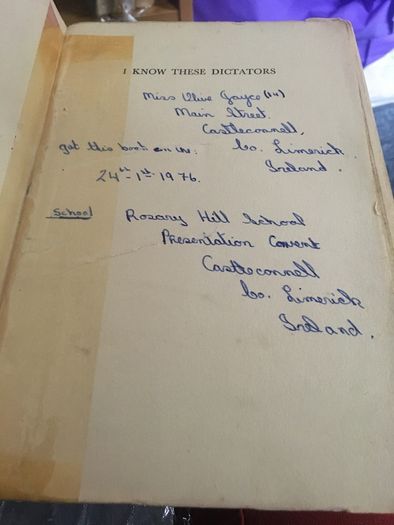 I KNOW THESE DICTATORS
Miss Olive Joyce (14)
Main Street
Castleconnell,
got this book on the. Co. Limerick.
Ireland.
24th - 1st - 1976.
School Rosary Hill School
Presentation Convent
Castleconnell
Co. Limerick
Ireland.